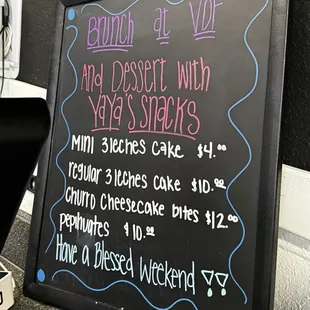 Brunch at VDF
And Dessert with
YAYA'S SNACKS
MINI 3leches CAKE $4.00
regular 3leches CAKE $10.00
CHURRO CHEESECAKE BITES $12.00
pepihuates $10.00
Have A Blessed Weekend !!